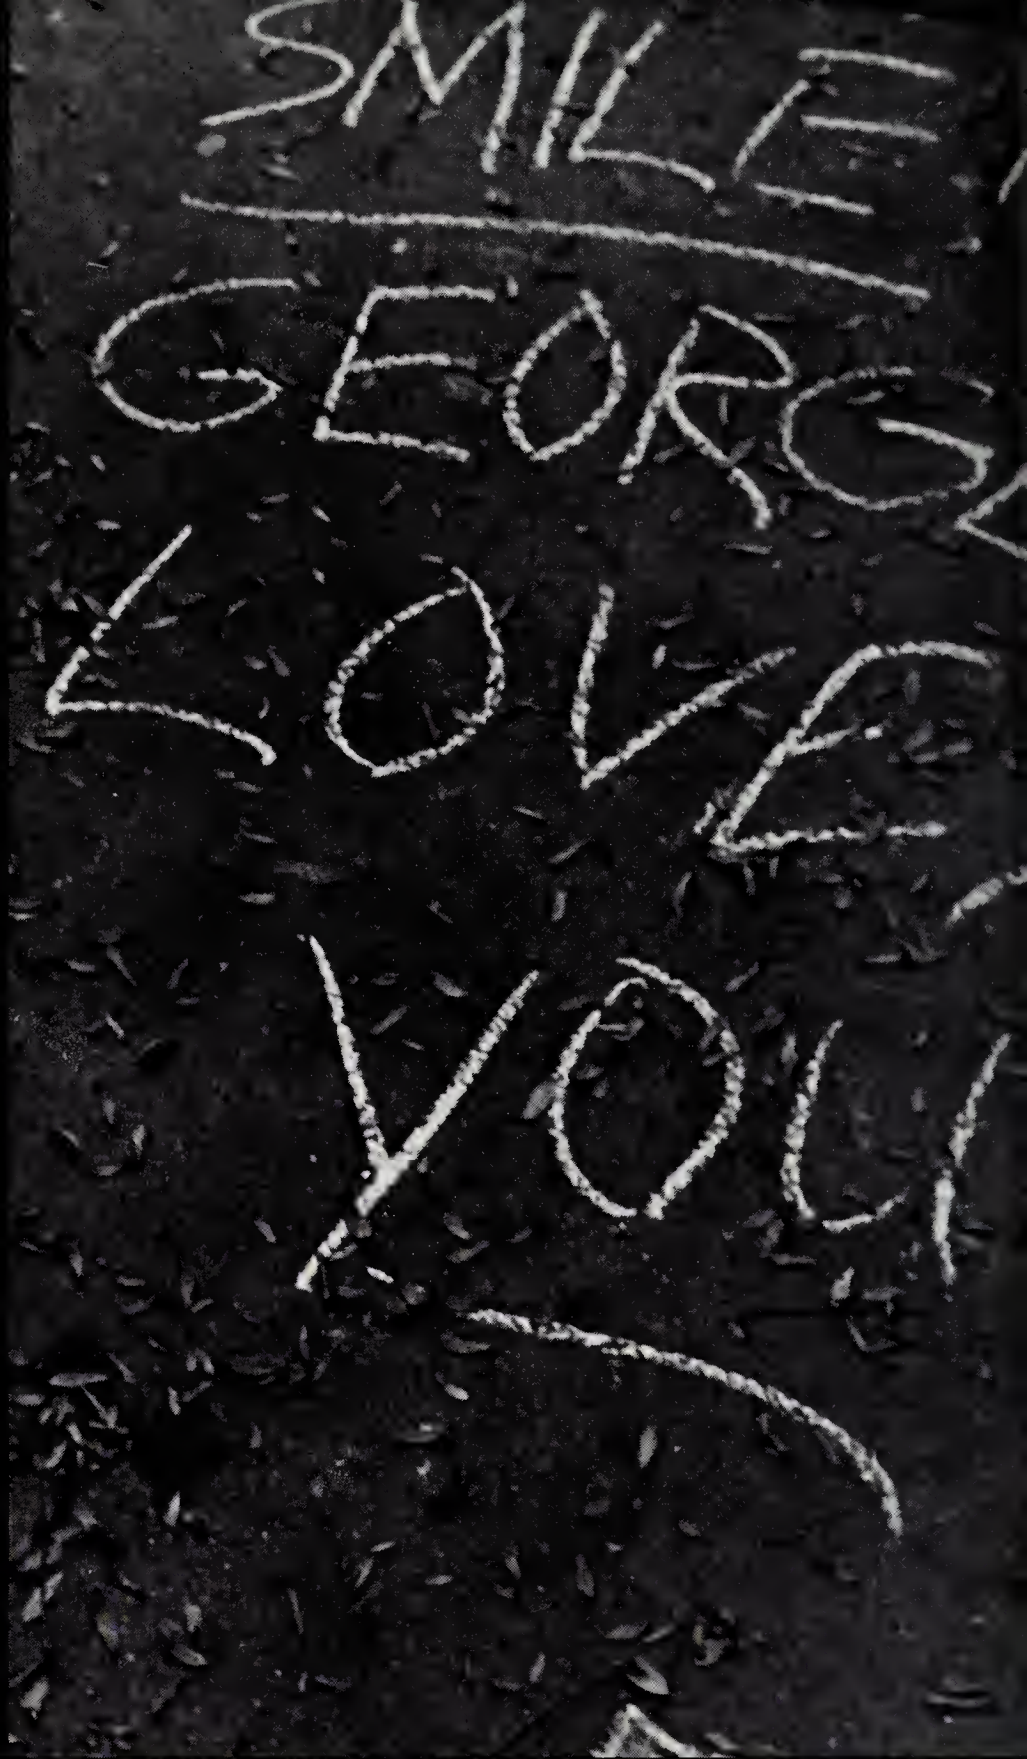 SMILE
GEORG
LOVE
YOU